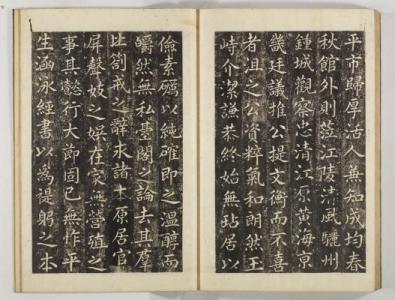 平市歸厚活人無知成均春
秋館外則莅江陵清風驪州
鍾城觀察忠清江原黃海京
畿廷議推公提文衡而不喜
者沮之公資粹氣和朗然玉
峙介潔謙恭終始無玷居以
儉素厲以純確即之溫醇而
皭然無私臺閣之論去其羣
壯劄戒之辭求諸本原居官
屏聲妓之娛在家無營殖之
事其懿行大節固已無怍平
生涵泳經書以為禔躬之本